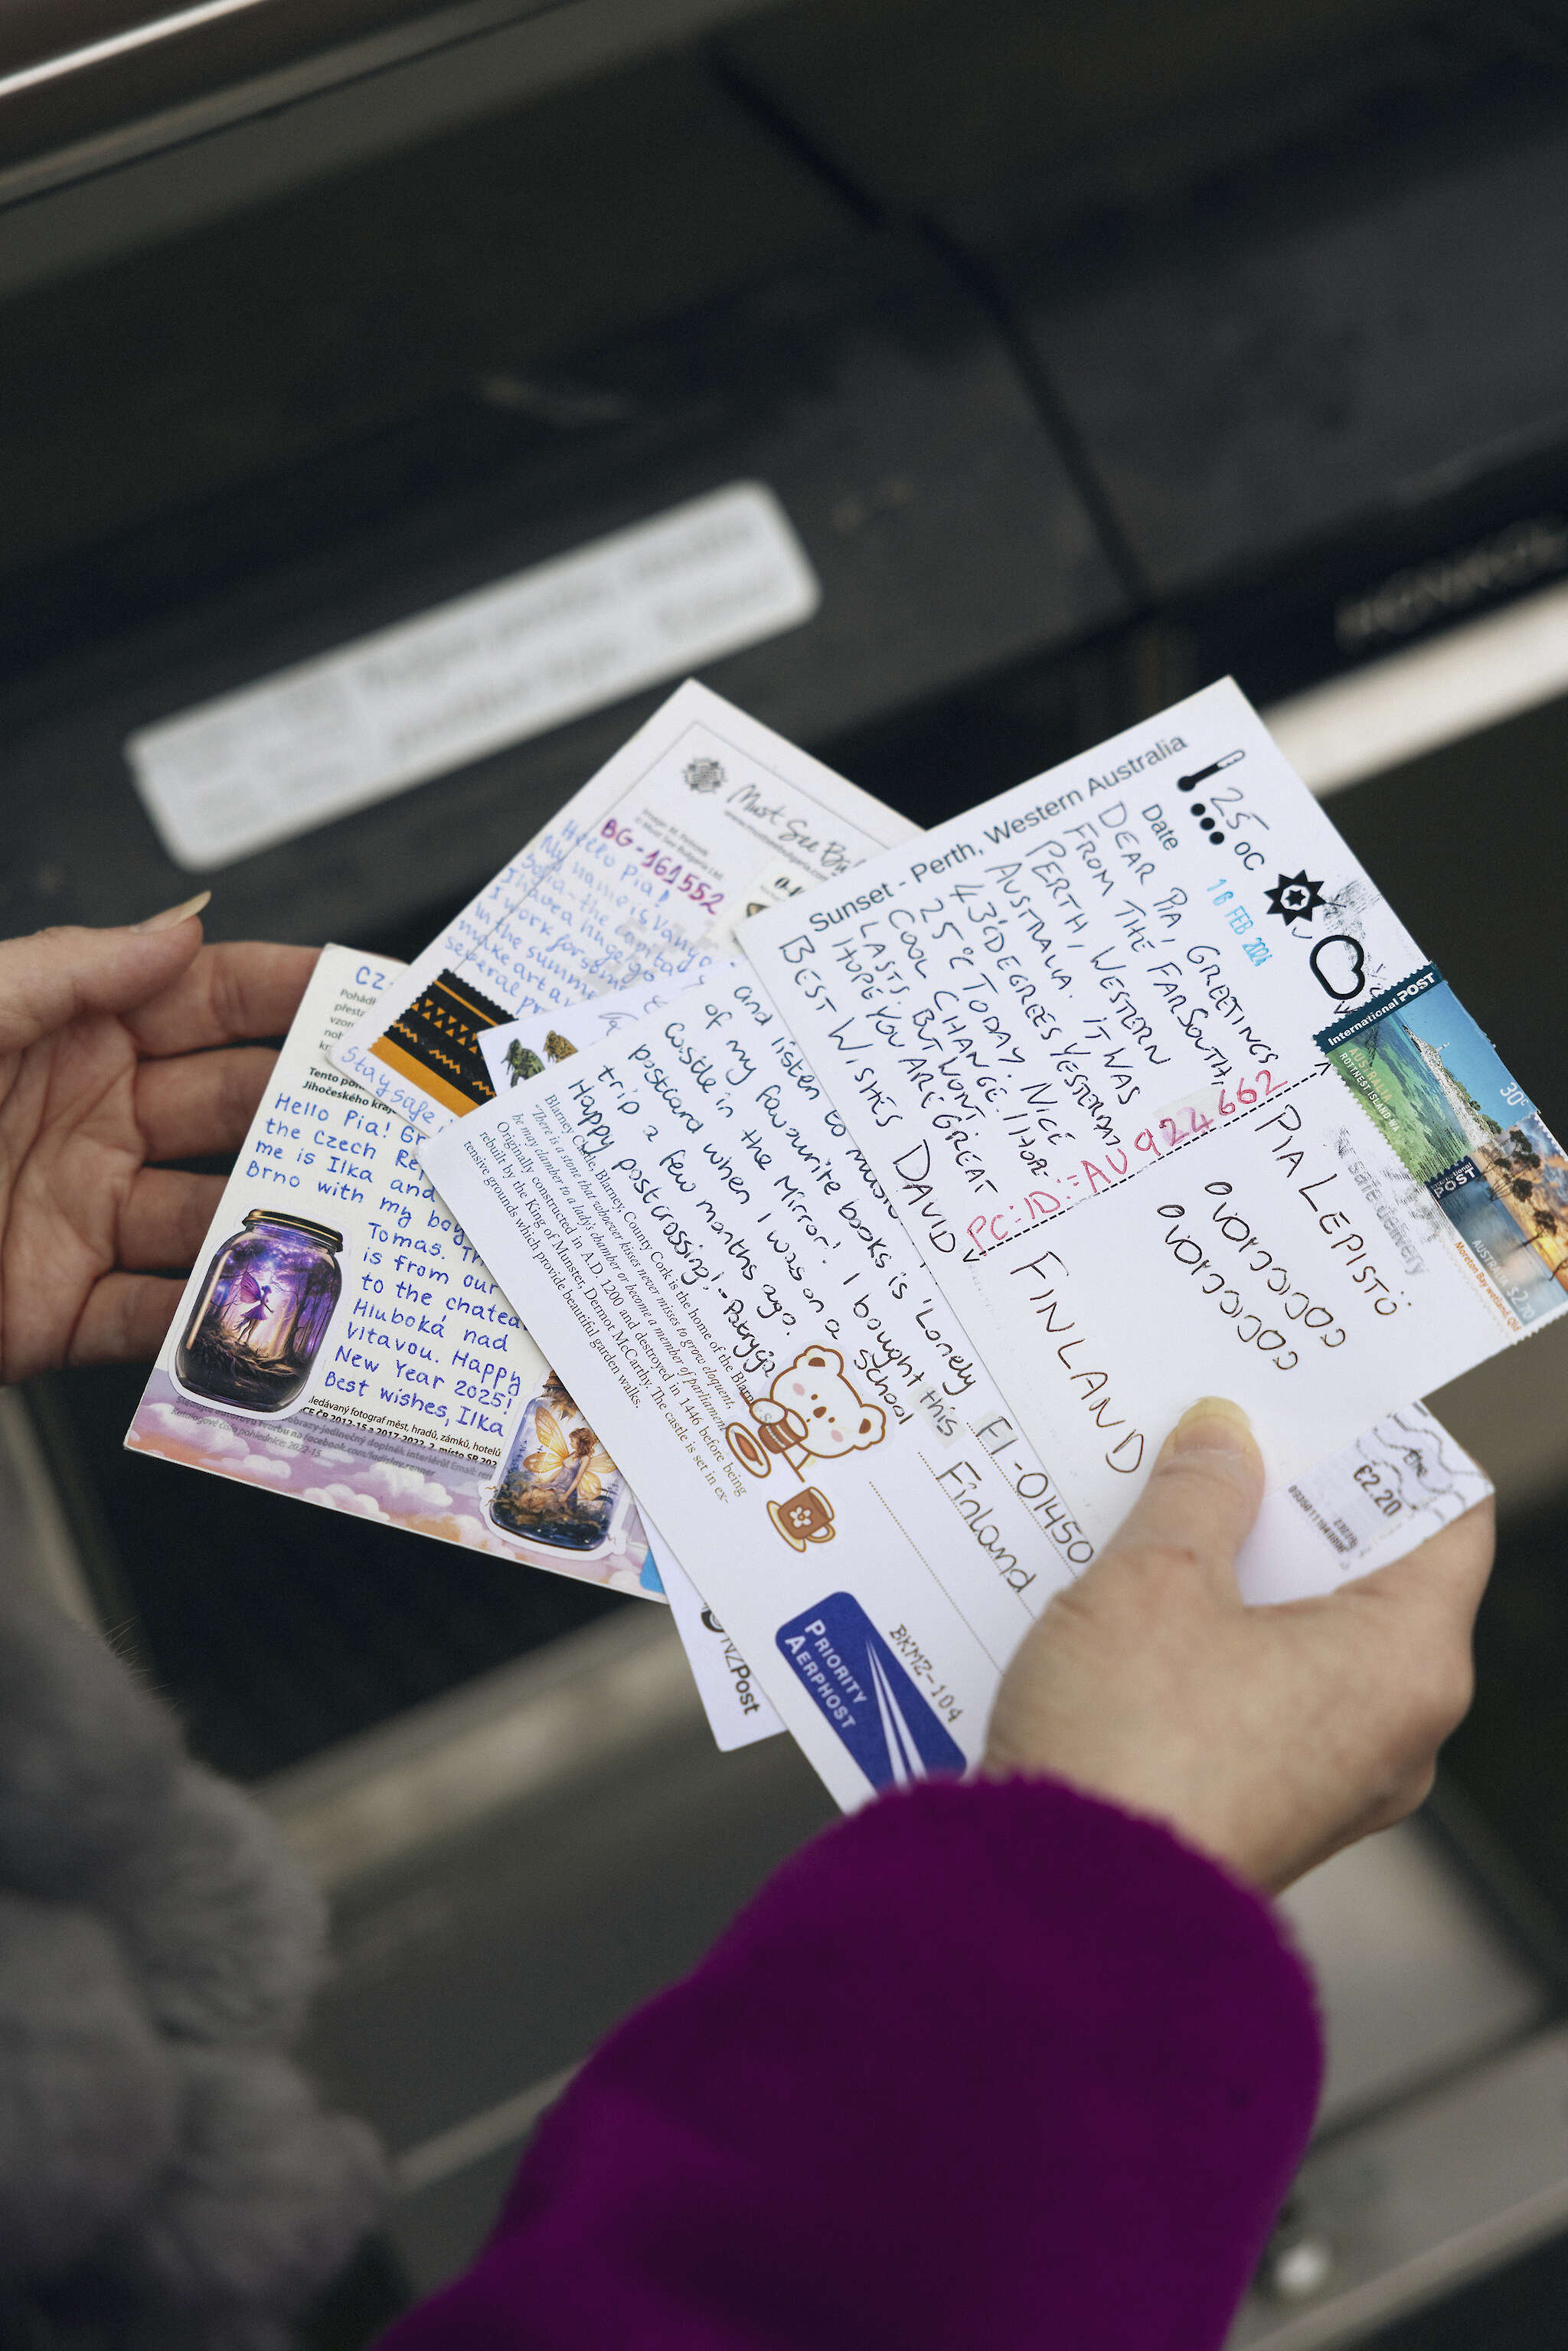 Must See
BG-161552
Hello Pia!
My name is Vanyo
Sofia - the capital
I have a huge go
I work for som
in the summe
make art a
several pr
Stay safe
CZ-
Pohádk
Tento poh
Jihočeského kraj
Hello Pia! Gr
the Czech Re
me is Ilka and
Brno with my boy
Tomas. Th
is from our
to the chatea
Hluboká nad
Vltavou. Happy
New Year 2025!
Best wishes, Ilka
ledávaný fotograf měst, hradů, zámků, hotelů
CE ČR 2012-15 a 2017-2022, 2. místo SR 202
and listen to music
of my favourite books is 'Lonely
Castle in the Mirror'. I bought this
postcard when I was on a school
trip a few months ago.
Happy postcrossing! - Patrycja
Blarney Castle, Blarney, County Cork is the home of the Blarn
"There is a stone that whoever kisses never misses to grow eloquent,
he may clamber to a lady's chamber or become a member of parliament
Originally constructed in A.D. 1200 and destroyed in 1446 before being
rebuilt by the King of Munster, Dermot McCarthy. The castle is set in ex-
tensive grounds which provide beautiful garden walks.
FI-01450
Finland
BKMZ-104
PRIORITY
AERPHOST
NZPost
Sunset - Perth, Western Australia
Date
16 FEB 2024
25 °C
DEAR PIA, GREETINGS
FROM THE FAR SOUTH,
PERTH, WESTERN
AUSTRALIA. IT WAS
43° DEGREES YESTERDAY
25°C TODAY. NICE
COOL CHANGE. I HOPE
LASTS. BUT WONT.
HOPE YOU ARE GREAT
BEST WISHES DAVID
PC:ID:-AU 924662
PIA LEPISTÖ
FINLAND
International POST
AUSTRALIA
ROTTNEST ISLAND WA
30c
International
POST
AUSTRALIA $2.70
Moreton Bay wetland, Qld
safe delivery
€2.20